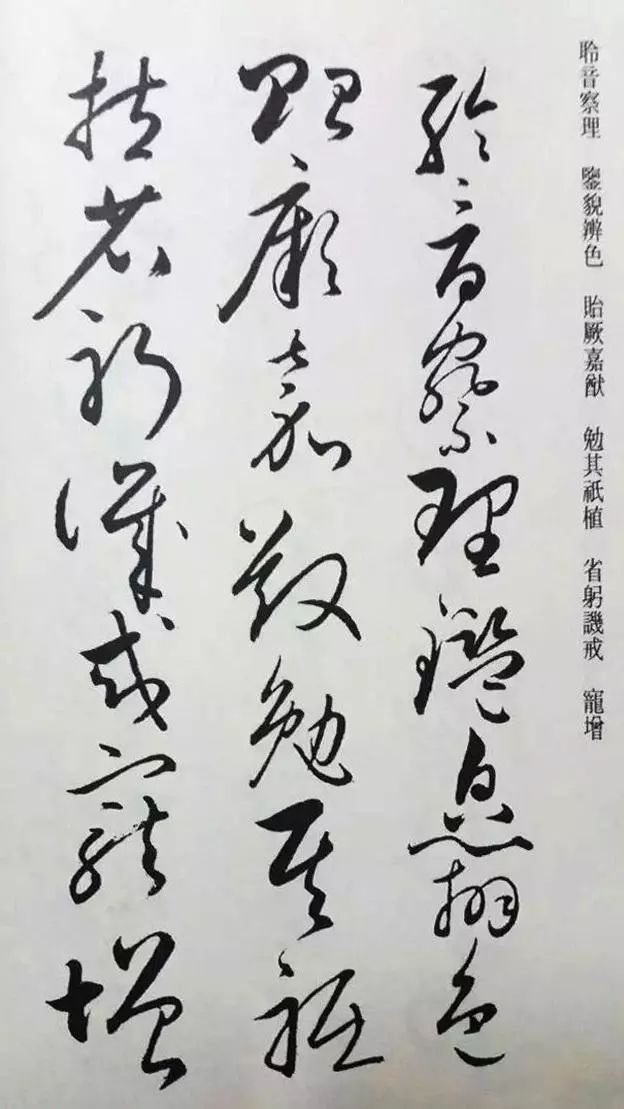 聆音察理 鑒貌辨色 貽厥嘉猷 勉其祇植 省躬譏戒 寵增
聆音察理鑒貌辨色
貽厥嘉猷勉其祇
植省躬譏戒寵增